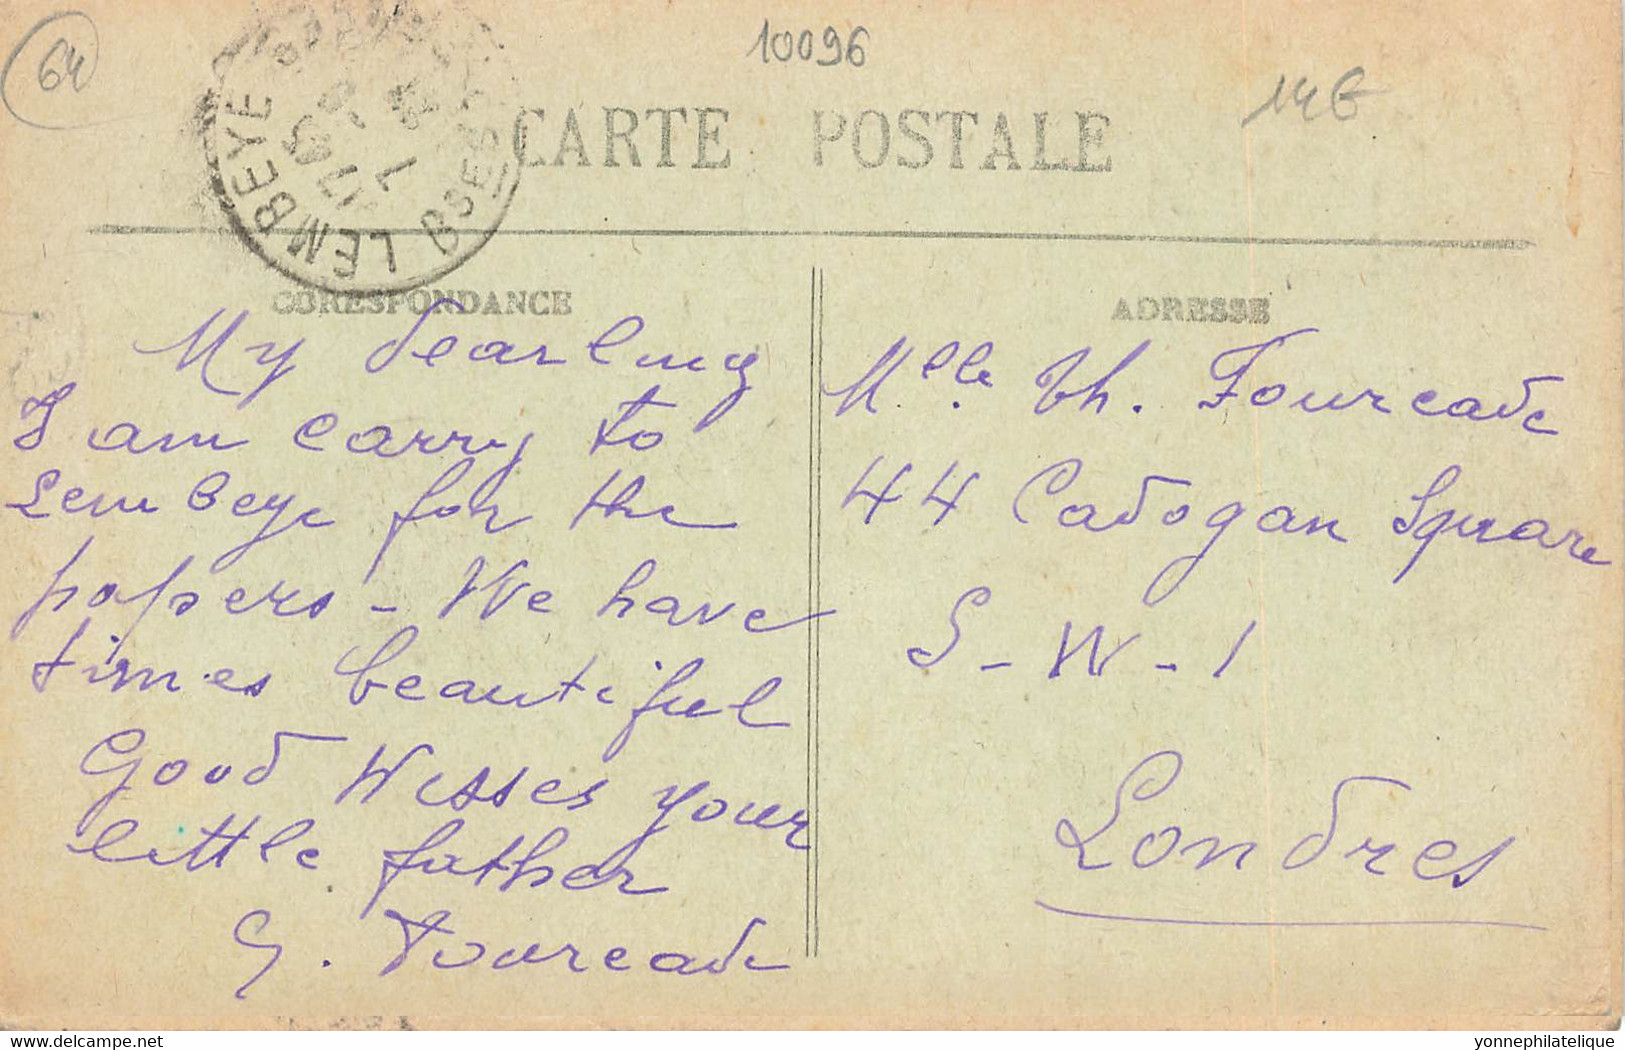 64
10096
14€
LEMBEYE
Bses
17
CARTE POSTALE
CORESPONDANCE
ADRESSE
My dearling
I am carry to
Lembeye for the
papers - We have
times beautiful
Good Wisses your
little father
G. Fourcade
Mlle. Th. Fourcade
44 Cadogan Square
S-W-1
Londres
delcampe.net
yonnephilatelique